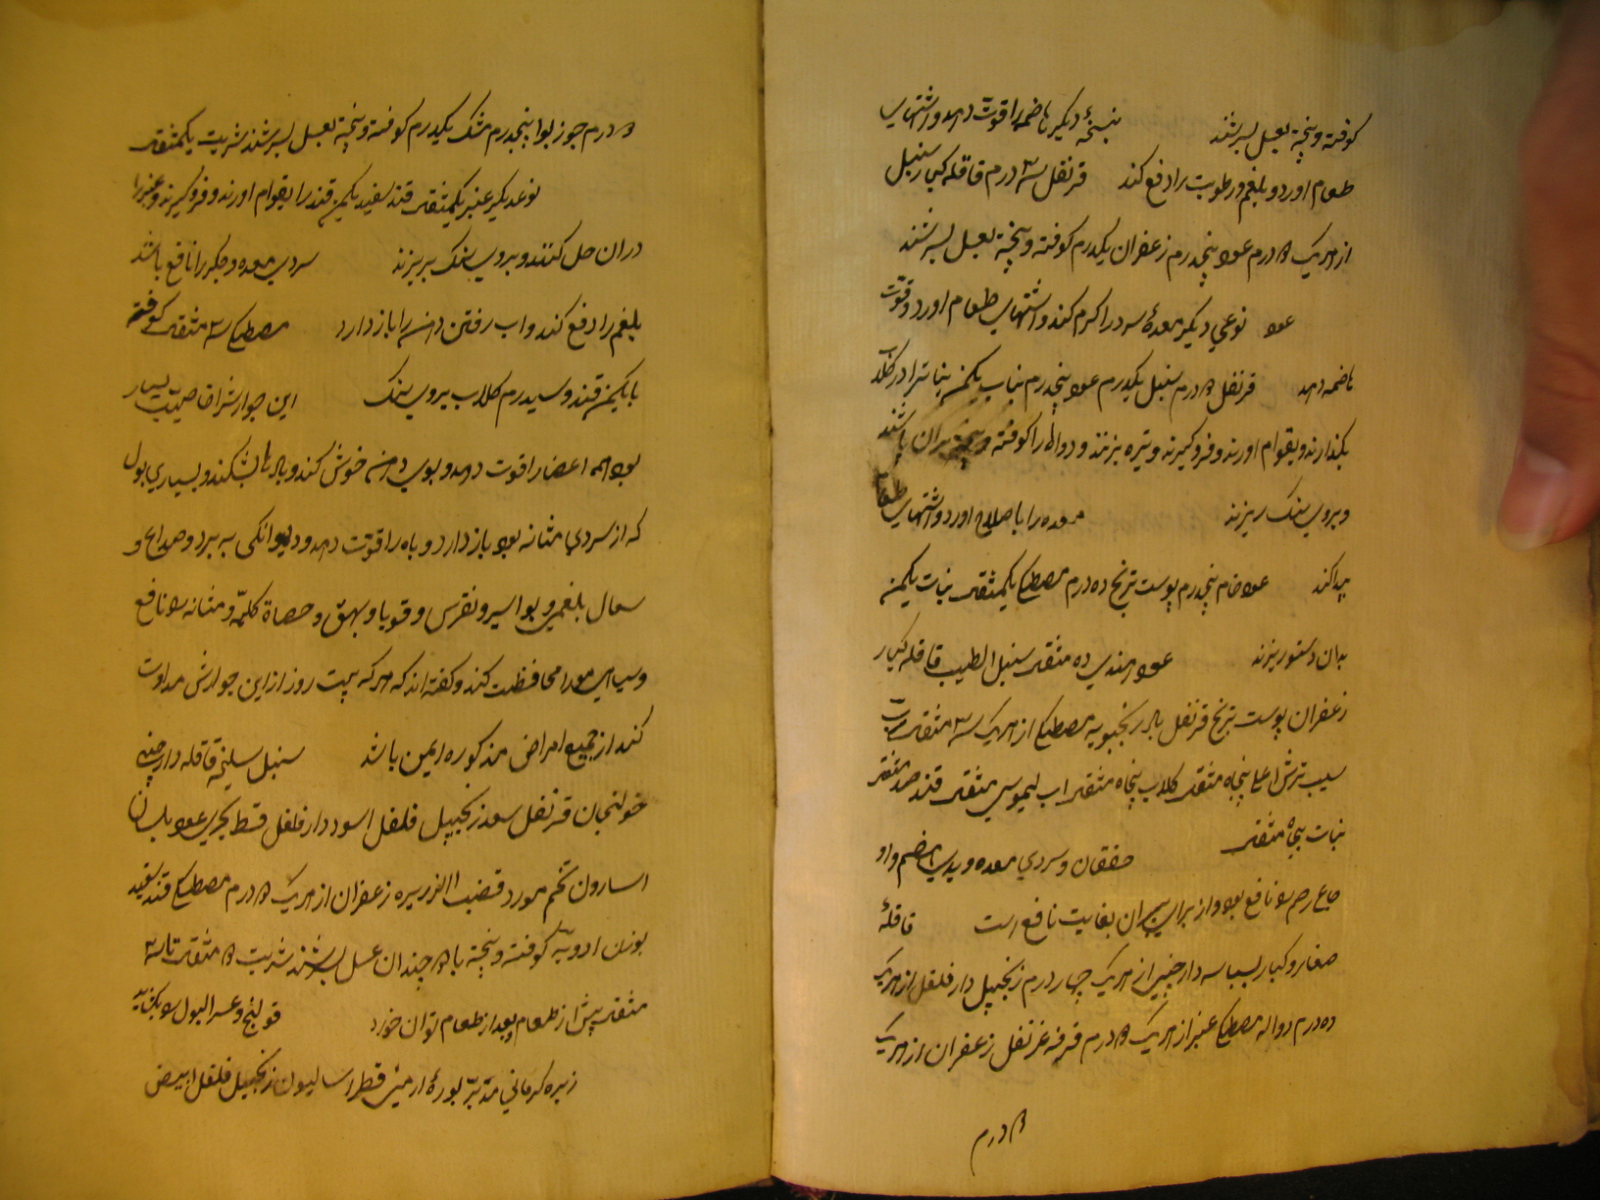 کوفته و بیخته بعسل بسرشند نسخهٔ دیگر هاضمه را قوت دهد و اشتهای
طعام اورد و بلغم و رطوبت را دفع کند قرنفل سه درم قاقله کبار سنبل
از هریک ۲ درم عود پنجدرم زعفران یکدرم کوفته و بیخته بعسل بسرشند
عود نوعی دیکر معدهٔ سرد را کرم کند و اشتهای طعام اورد و قوت
هاضمه دهد قرنفل ۲ درم سنبل یکدرم عود پنجدرم نبات یکمن نبات را در کلاب
بکدارند و بقوام اورند و فروکیرند و تیره بزنند و دواها را کوفته و بیخته بران باشند
و بروی سنک ریزند معده را باصلاح اورد و اشتهای طعام
پیدا کند عود خام پنجدرم پوست ترنج ده درم مصطکی یکمثقال نبات یکمن
بدان دستور پزند عود هندی ده مثقال سنبل الطیب قاقله کبار
زعفران پوست ترنج قرنفل بادرنجبویه مصطکی از هریک سه مثقال
سیب ترش اعلی پنجاه مثقال کلاب پنجاه مثقال اب لیموی مثقال قند صد مثقال
نبات پنجاه مثقال خفقان و سردی معده و بدی هضم و او
جاع رحم را نافع بود و از برای پیران بغایت نافع است قاقلهٔ
صغار و کبار بسباسه دارچینی از هریک چهار درم زنجبیل دارفلفل از هریک
ده درم دواله مصطکی عنبر از هریک ۲ درم قرفه قرنفل زعفران از هریک
۲ درم
۲ درم جوز بوا پنجدرم مشک یکدرم کوفته و بیخته بعسل بسرشند شربت یکمثقال
نوعدیکر عنبر یکمثقال قند سفید یکمن قند را بقوام اورند و فروکیرند و عنبر را
دران حل کنند و بروی سنک بریزند سردی معده و جکر را نافع باشد
بلغم را دفع کند و اب رفتن دهن را باز دارد مصطکی سه مثقال کوفته
با یکمن قند و سیدرم کلاب بروی سنک این جوارش را خاصیت بسیار
بود همه اعضا را قوت دهد و بوی دهن خوش کند و باد را بشکند و بسیاری بول
که از سردی مثانه بود باز دارد و باه را قوت دهد و دیوانکی ببرد و صداع و
سعال بلغمی و بواسیر و نقرس و قوبا و بهق و حصاة کلیه و مثانه را نافع
و سیاهی مو را محافظت کند و کفته اند که هر که بیست روز از این جوارش مداومت
کند از جمیع امراض مذکوره ایمن باشد سنبل سلیخه قاقله دارچینی
خولنجان قرنفل سعد زنجبیل فلفل اسود دارفلفل قسط بحری عود بلسان
اسارون تخم مورد قصب الذریره زعفران از هریک ۲ درم مصطکی قند سفید
بوزن ادویه کوفته و بیخته با ۲ چندان عسل بسرشند شربت ۲ مثقال تا سه
مثقال پیش از طعام و بعد از طعام توان خورد قولنج و عسر البول را بکشاید
زیره کرمانی مدبر بورهٔ ارمنی فطراسالیون زنجبیل فلفل ابیض